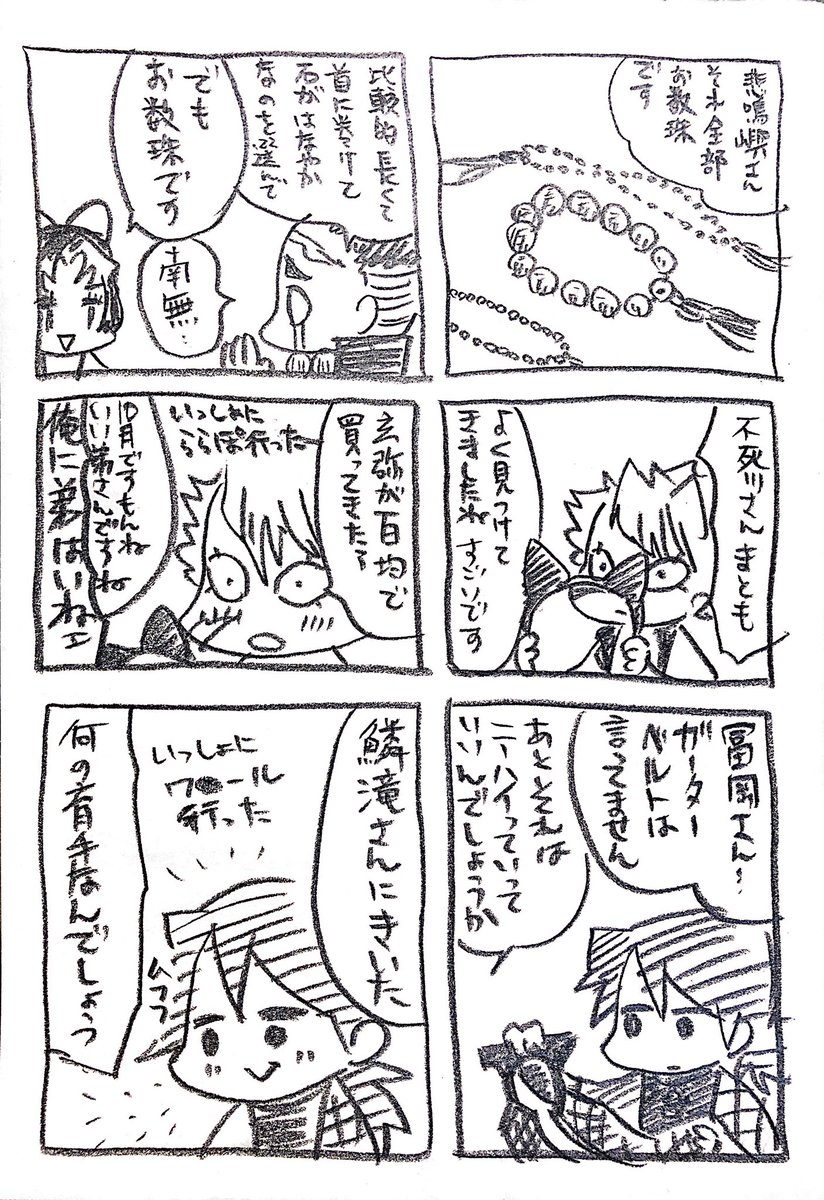 悲鳴嶼さん
それ全部
お数珠
です
比較的長くて
首に巻けて
石がはなやか
なのを選んで
南無…
でも
お数珠です
不死川さんまとも
よく見つけて
きましたね すごいです
玄弥が百均で
買ってきたァ
いっしょに
ららぽ行った
10月ですもんね
いい弟さんですね
俺に弟はいねェ
冨岡さん…
ガーター
ベルトは
言ってません
あとそれは
ニーハイっていって
いいんでしょうか
鱗滝さんにきいた
いっしょに
行った
ムフフ
何の育手なんでしょう